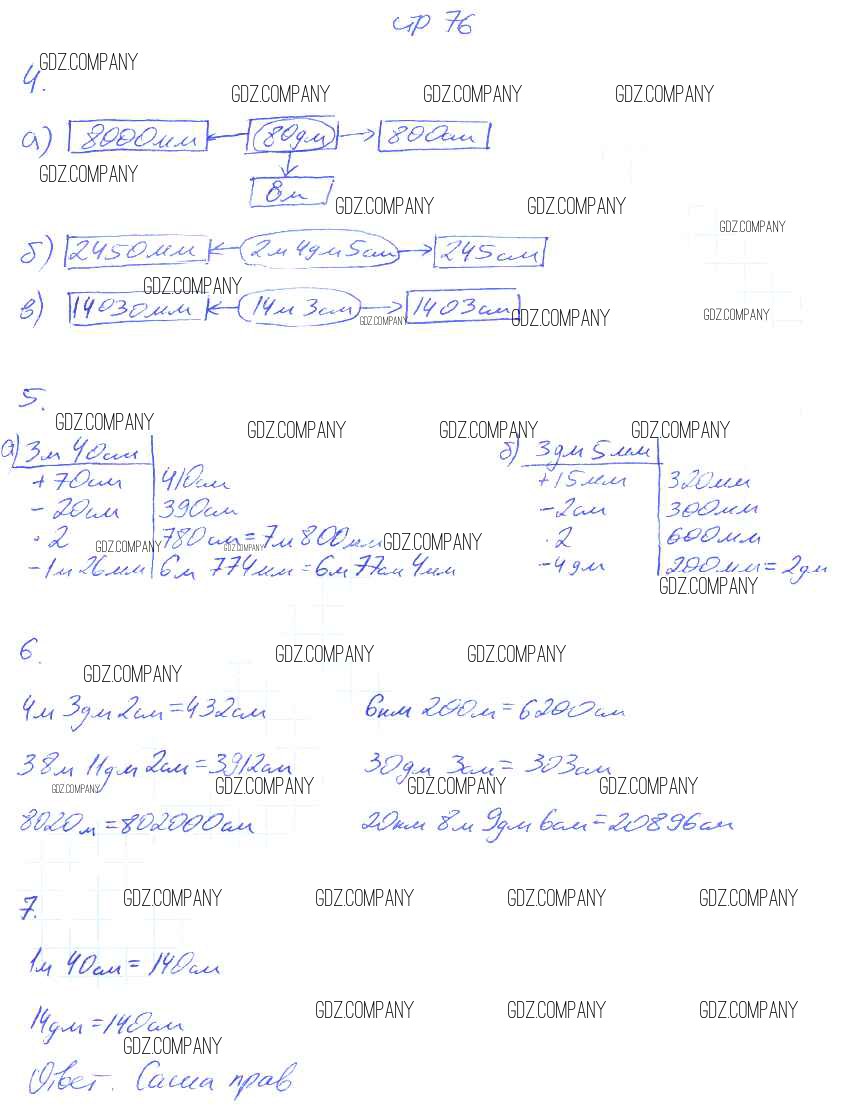 стр 76
GDZ.COMPANY
4.
GDZ.COMPANY GDZ.COMPANY GDZ.COMPANY
а) 8000мм 80дм 800см
GDZ.COMPANY
8м
GDZ.COMPANY GDZ.COMPANY
GDZ.COMPANY
б) 2450мм 2м 4дм 5см 245см
GDZ.COMPANY
в) 14030мм 14м 3см 1403см
GDZ.COMPANY GDZ.COMPANY GDZ.COMPANY
5.
GDZ.COMPANY GDZ.COMPANY GDZ.COMPANY GDZ.COMPANY
а) 3м 40см б) 3дм 5мм
+70см 410см +15мм 320мм
- 20см 390см -2см 300мм
· 2 780см = 7м 800мм ·2 600мм
GDZ.COMPANY GDZ.COMPANY GDZ.COMPANY
-1м 26мм 6м 774мм = 6м 77см 4мм -4дм 200мм = 2дм
GDZ.COMPANY
6.
GDZ.COMPANY GDZ.COMPANY
GDZ.COMPANY
4м 3дм 2см = 432см 6км 200м = 6200см
38м 11дм 2см = 3912см 30дм 3см = 303см
GDZ.COMPANY GDZ.COMPANY GDZ.COMPANY GDZ.COMPANY
8020м = 802000см 20км 8м 9дм 6см = 20896см
7.
GDZ.COMPANY GDZ.COMPANY GDZ.COMPANY GDZ.COMPANY
1м 40см = 140см
14дм = 140см
GDZ.COMPANY GDZ.COMPANY GDZ.COMPANY
GDZ.COMPANY
Ответ. Саша прав